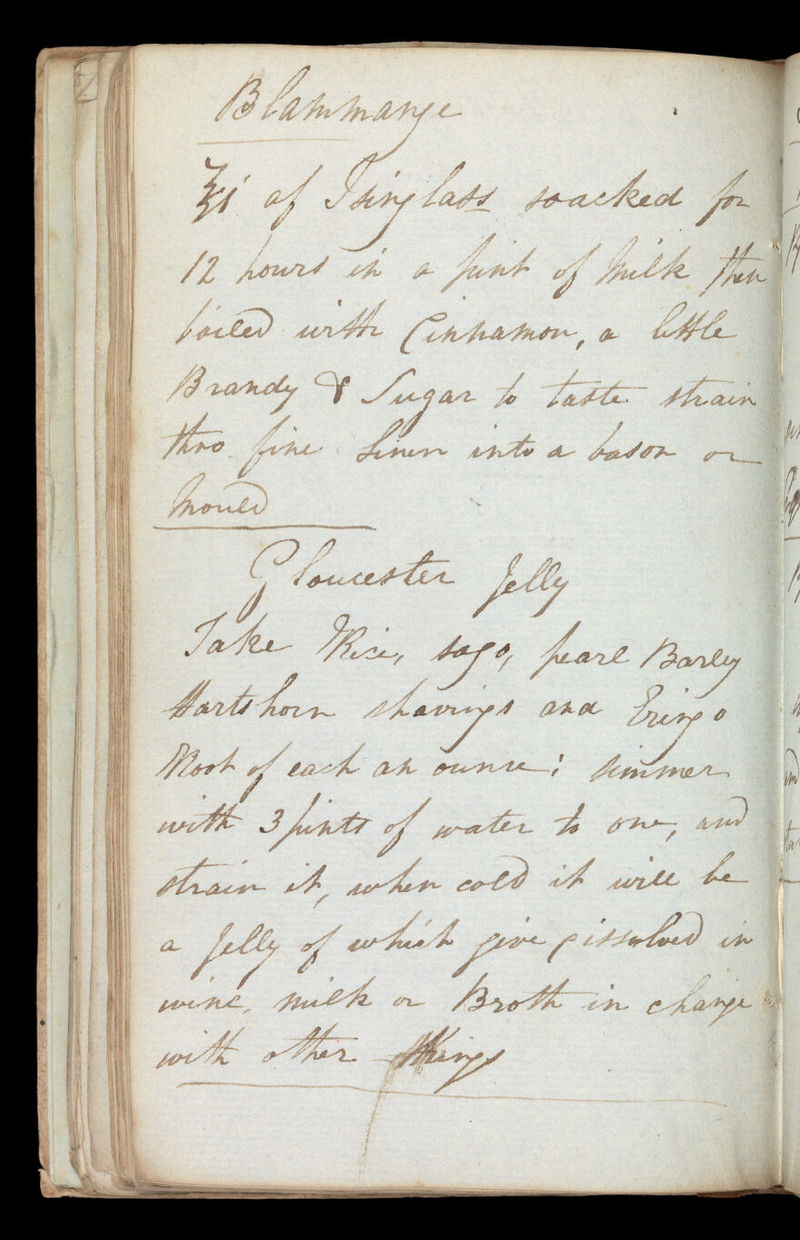 Blammange
℥i of Isinglass soacked for
12 hours in a pint of Milk then
boiled with Cinnamon, a little
Brandy & Sugar to taste strain
thro fine Linen into a bason or
Mould
Gloucester Jelly
Take Rice, sago, pearl Barley
Hartshorn shavings and Eringo
Root of each an ounce; simmer
with 3 pints of water to one, and
strain it, when cold it will be
a Jelly of which give dissolved in
wine, milk or Broth in change
with other things